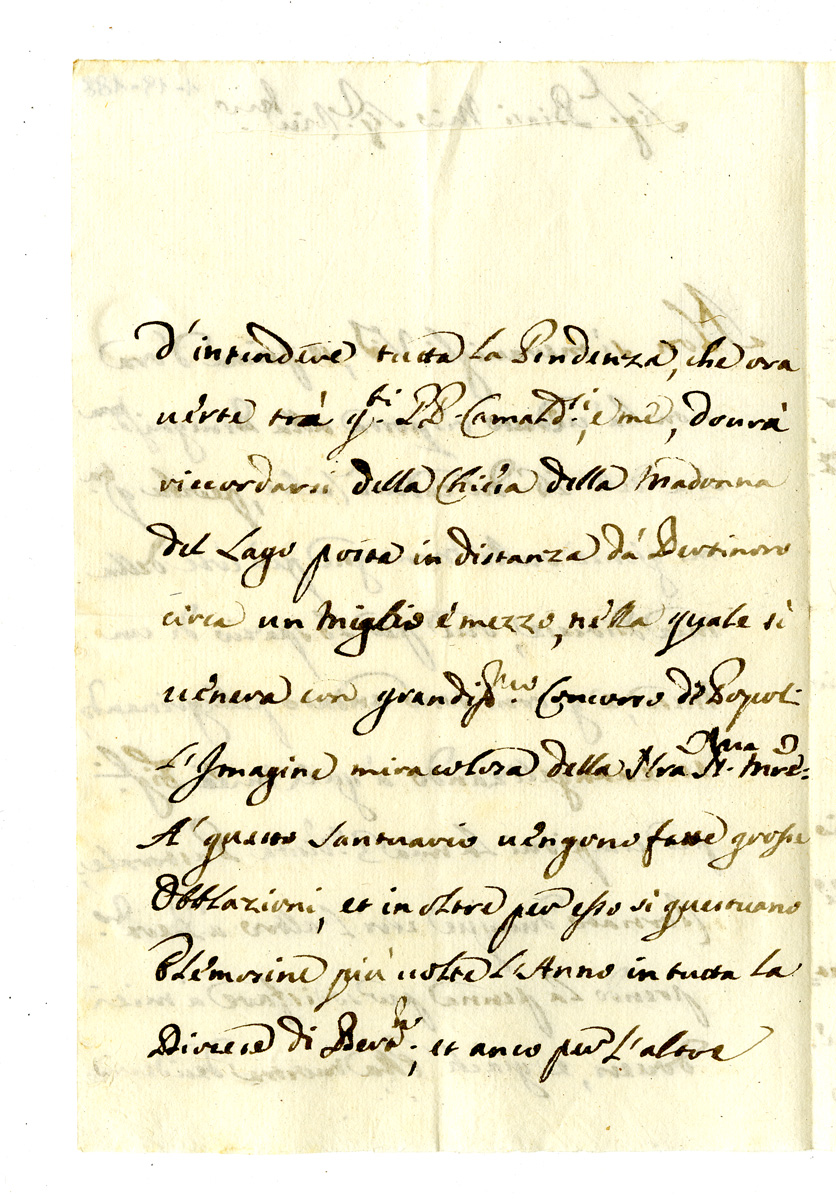 d'intendere tutta la Pendenza, che ora
verte trà q.ti PP. Camald.i, e me, dovrà
riccordarsi della Chiesa della Madonna
del Lago posta in distanza dà Bertinoro
circa un miglio è mezzo, nella quale si
venera con grandiss.mo Concorso dè Popoli
L'Imagine miracolosa della Nra S.ma Mre:
A' questo Santuario vengono fatte grosse
Obblazioni, et in oltre per esso si questuano
Elemosine più volte L'Anno in tutta la
Diocese di Bert.ro; et anco per L'altre